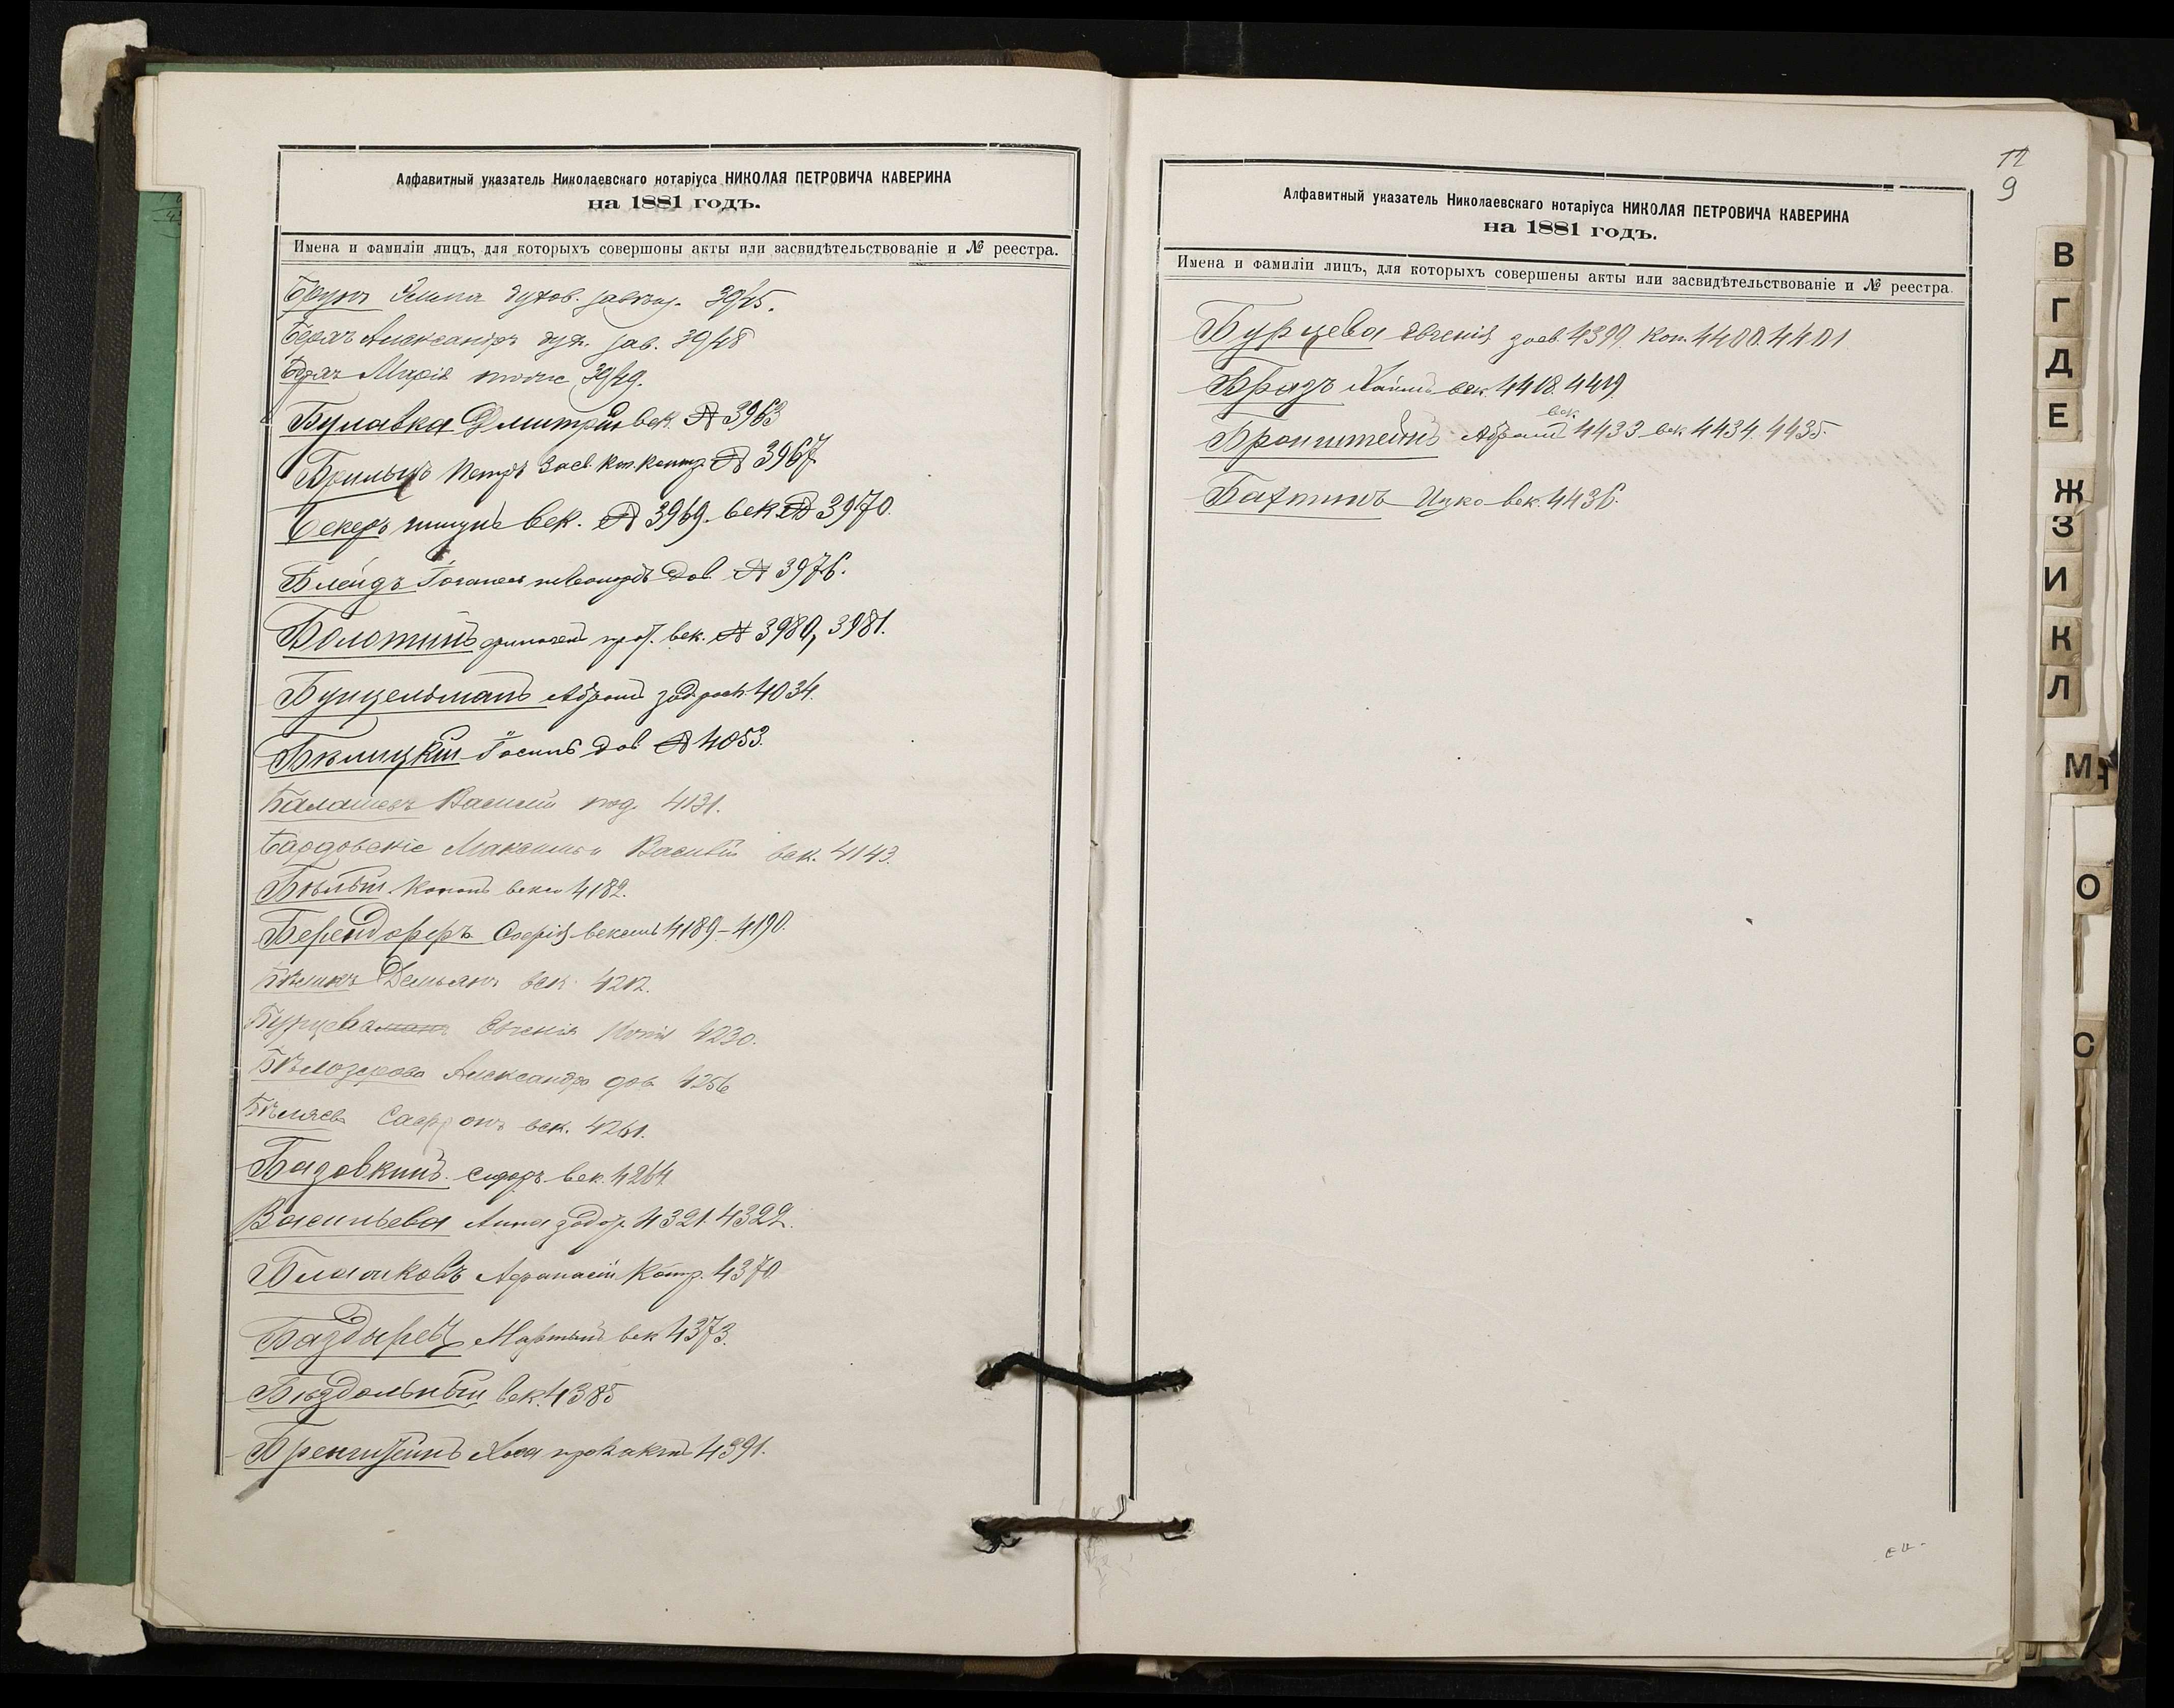 Алфавитный указатель Николаевскаго нотаріуса НИКОЛАЯ ПЕТРОВИЧА КАВЕРИНА
на 1881 годъ.
Имена и фамиліи лицъ, для которыхъ совершоны акты или засвидѣтельствованіе и № реестра.
духов. 3945.
Александръ дух. зав. 3948
Марія 3949.
Булавка Дмитрій век. № 3963
Петръ засв. коп. контр. № 3967
Бекеръ век. № 3969. век № 3970.
Блейдъ дов. № 3976.
Болотинъ прот. век. № 3980, 3981.
Бунцельманъ Абрамъ 4034.
Бѣлицкій Іосифъ дов № 4053.
Балашовъ Василій под. 4131.
Бардовскіе Максимъ и Василій век. 4143.
Бѣлый Кононъ векс 4182.
Берендорферъ Софія вексель 4189-4190.
Бѣликъ Демьянъ век. 4212.
Бурцева Евгенія Копія 4230.
Бѣлозерова Александра дов 4256
Бѣляевъ век. 4261.
Базовкинъ Сидоръ век. 4264
Васильева Анна 4321. 4322.
Афанасій Контр. 4370
Баздыревъ Мартынъ век 4373.
Бездольный век. 4385
4391.
11
9
Алфавитный указатель Николаевскаго нотаріуса НИКОЛАЯ ПЕТРОВИЧА КАВЕРИНА
на 1881 годъ.
Имена и фамиліи лицъ, для которыхъ совершены акты или засвидѣтельствованіе и № реестра.
Бурцева Евгенія 4399. коп. 4400. 4401
Бразъ Хаимъ век. 4418. 4419.
век
Бронштейнъ Абрамъ 4433 век 4434. 4435.
Бахтинъ Ицко век. 4436.
В
Г
Д
Е
Ж
З
И
К
Л
М
О
С